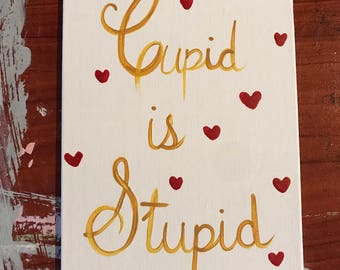 Cupid
is
Stupid